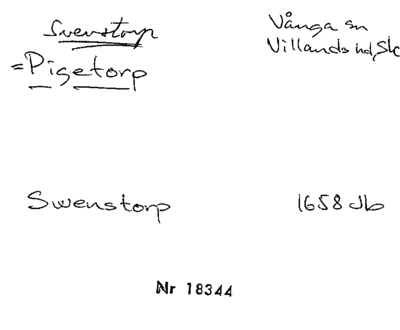 Svenstorp
=Pigetorp
Vånga sn
Villands hd, Sk
Swenstorp 1658 Jb
Nr 18344